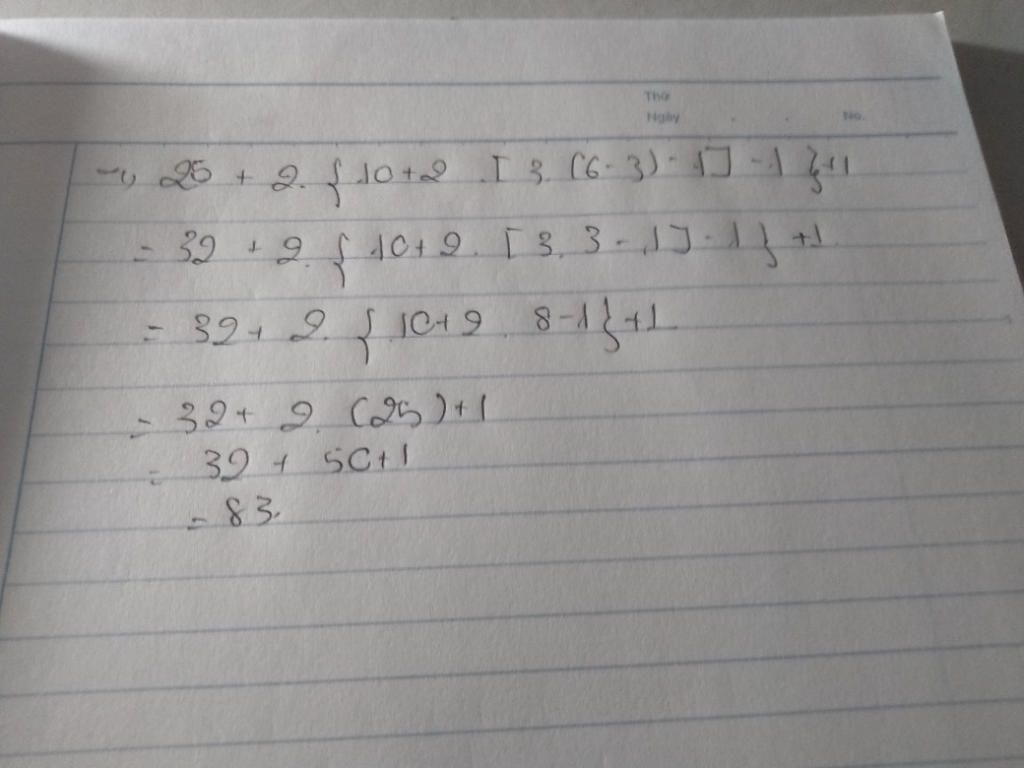 Thứ
Ngày . . No.
25 + 2. { 10+2 . [ 3. (6-3) - 1] - 1 }+1
= 32 + 2. { 10+2. [ 3. 3 - 1] - 1 } +1
= 32+ 2. { 10+2 . 8-1}+1
= 32+ 2. (25)+1
= 32 + 50+1
= 83.